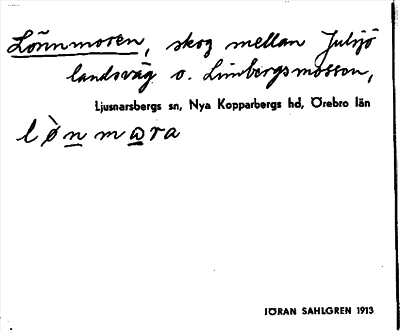 Lönnmoren, skog mellan Julsjö
landsväg o. Limbergsmossen,
Ljusnarsbergs sn, Nya Kopparbergs hd, Örebro län
lò̤n mɷra
JÖRAN SAHLGREN 1913